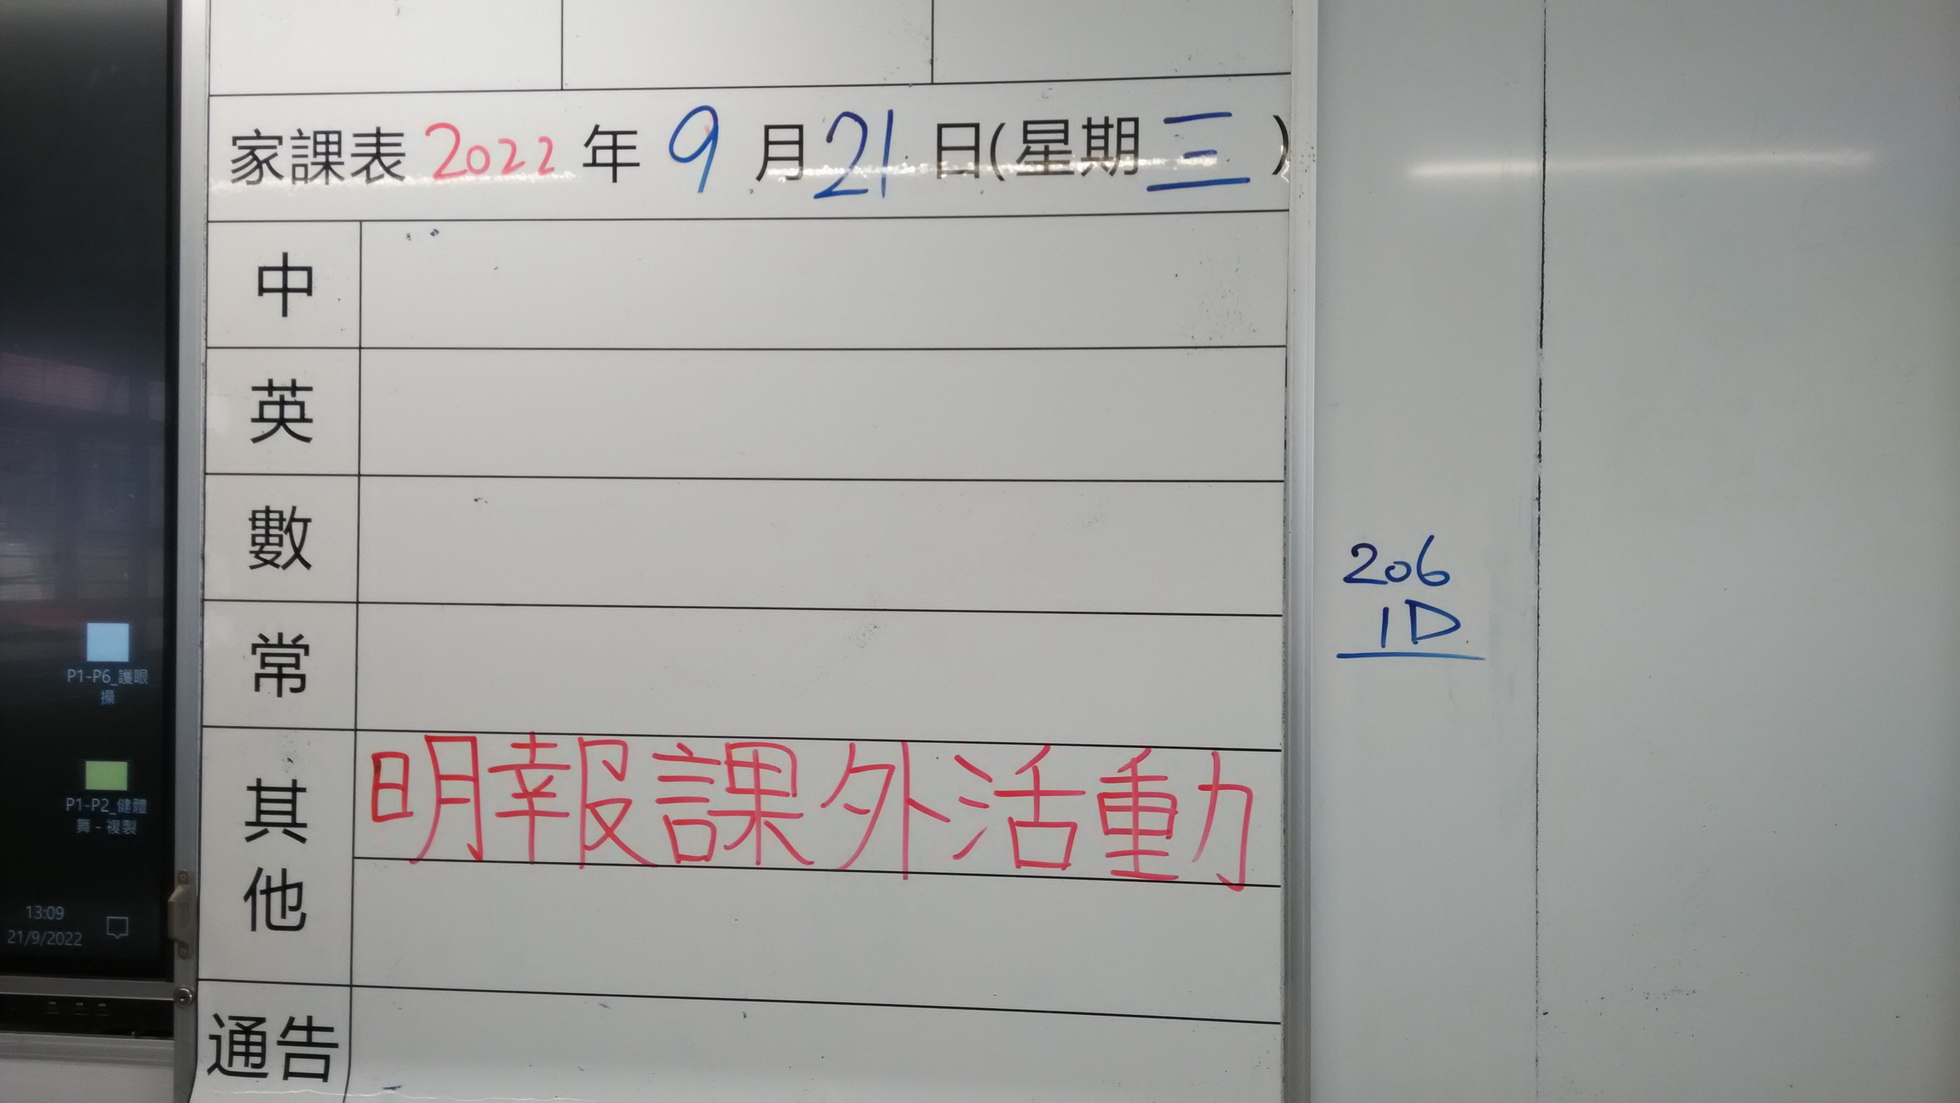 家課表 2022 年 9 月 21 日(星期三)
中
英
數
常
其他
明報課外活動
通告
206
1D
P1-P6_護眼
操
P1-P2_健體
舞 - 複製
13:09
21/9/2022